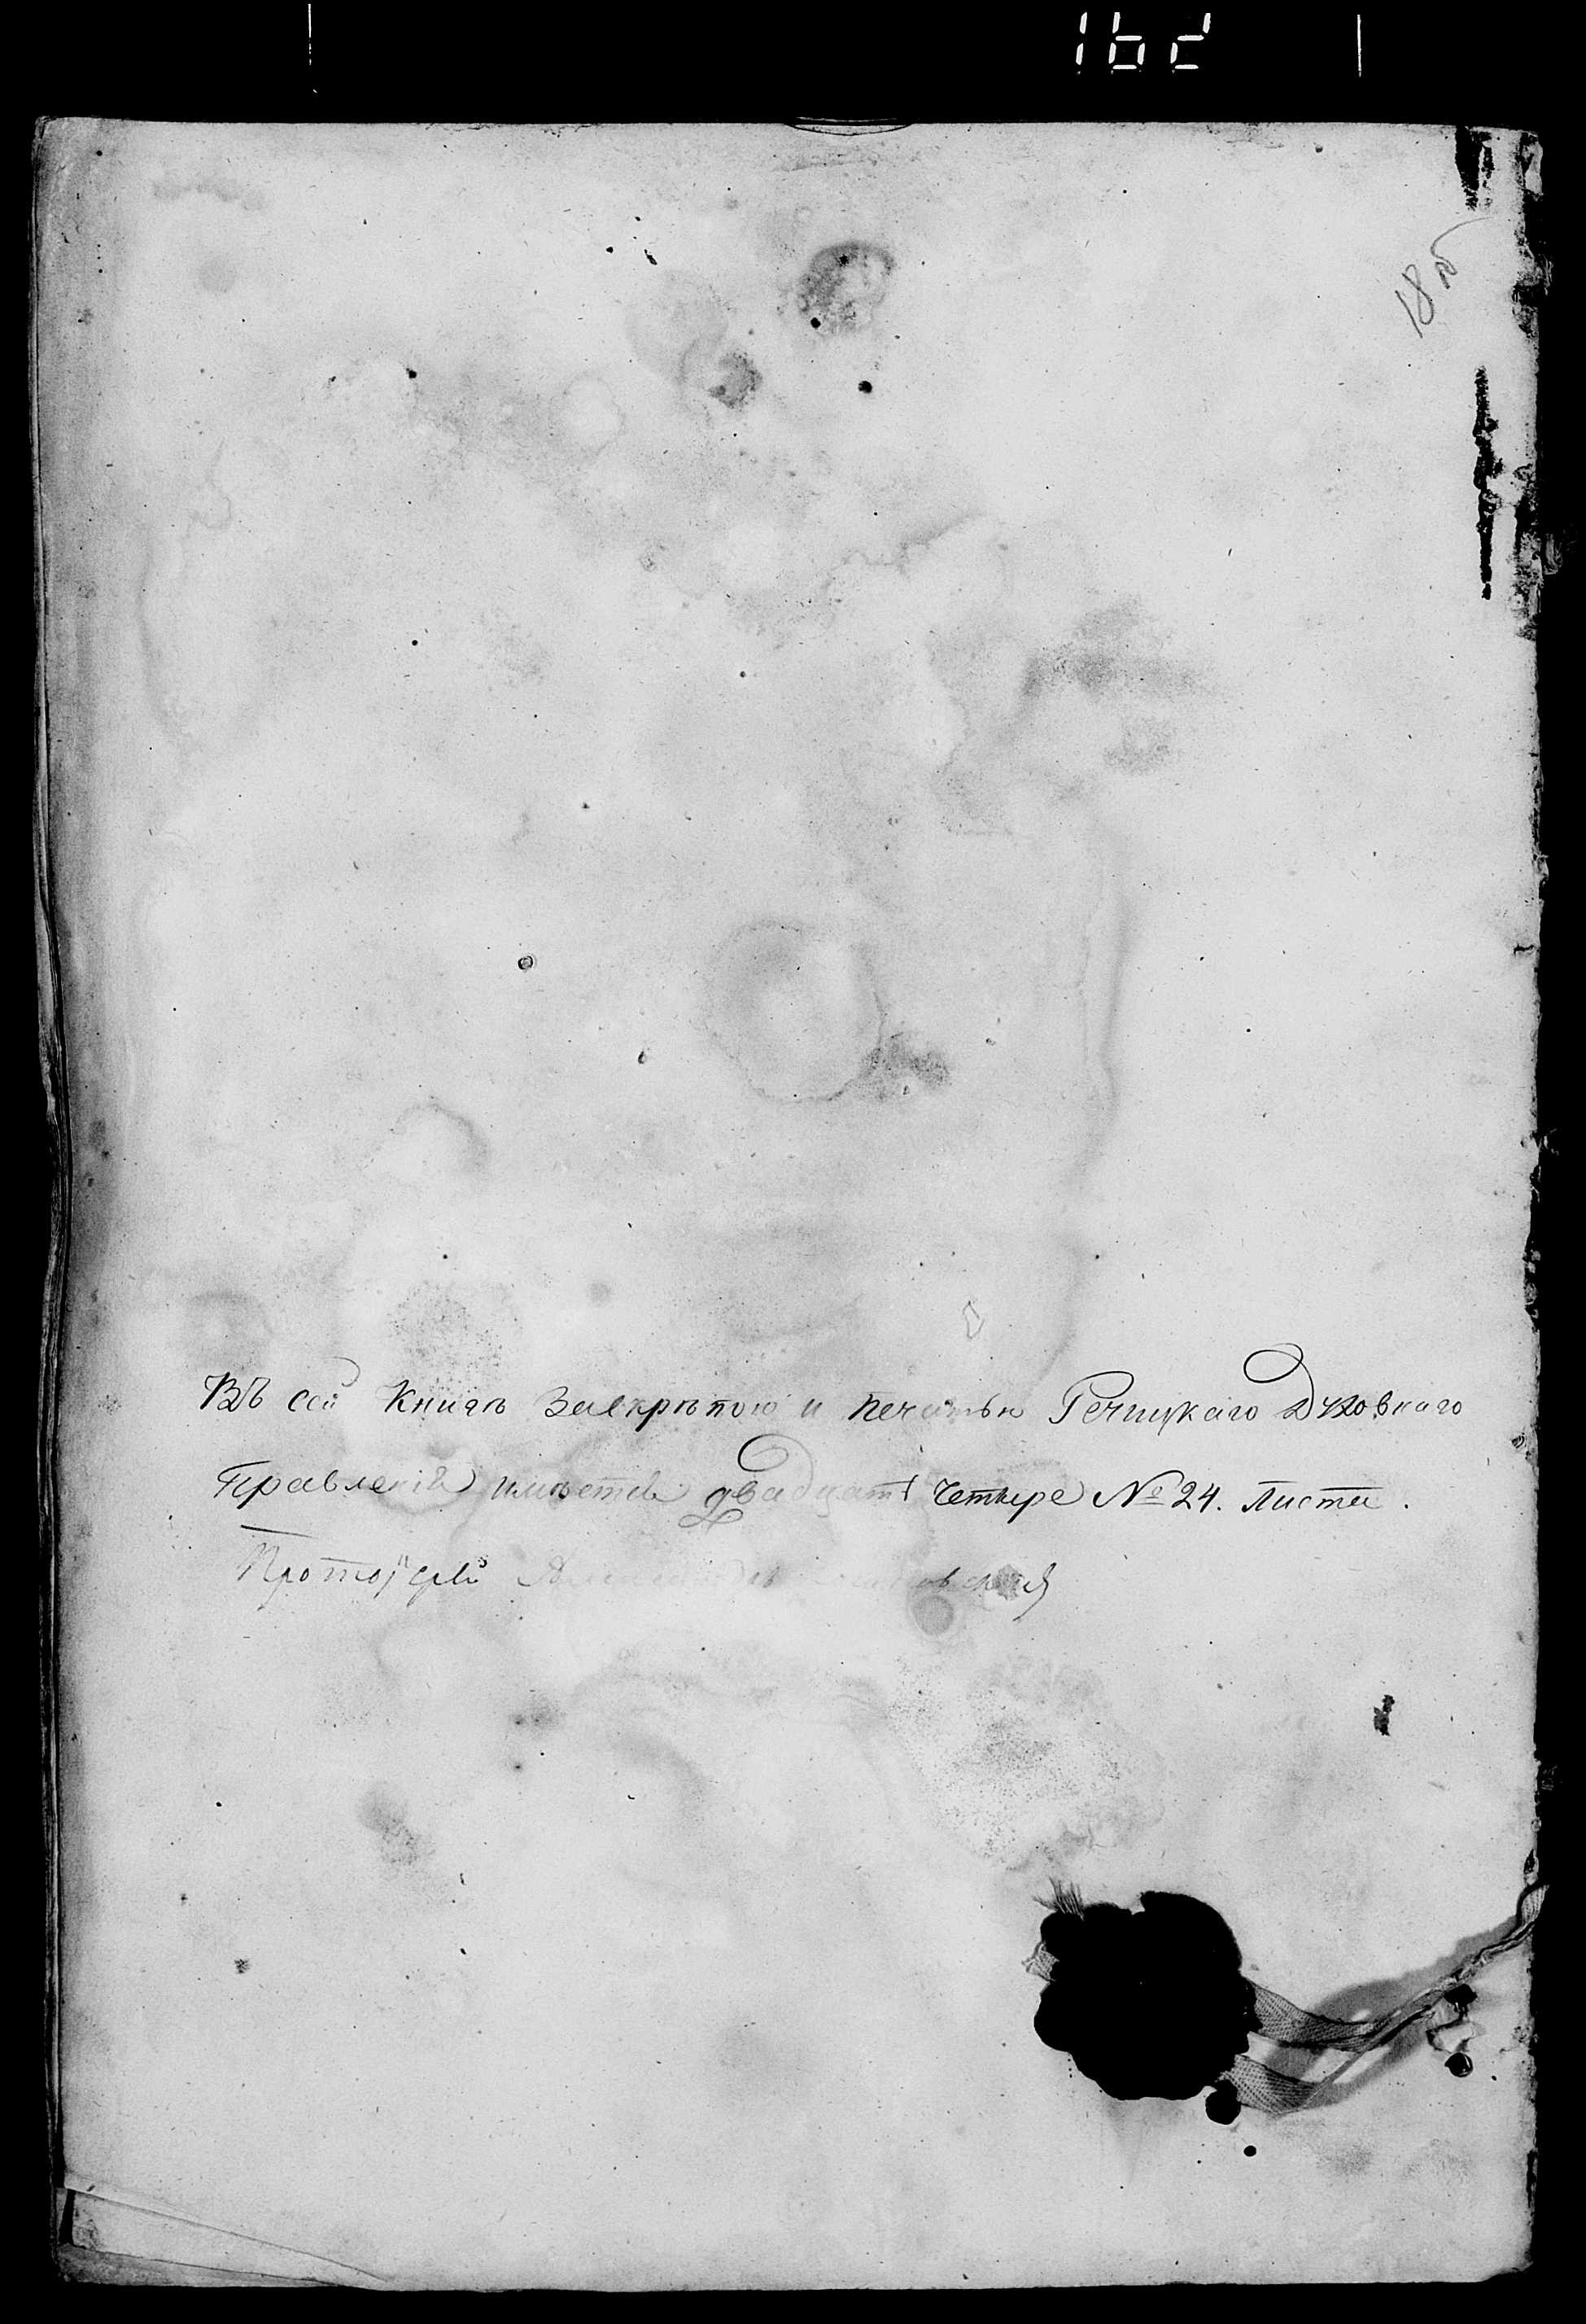 162
18 об
Въ сей Книгѣ За скрѣпою и печатью Речицкаго Духовнаго
Правленія имѣется двадцать четыре № 24. листа.
Протоіерей